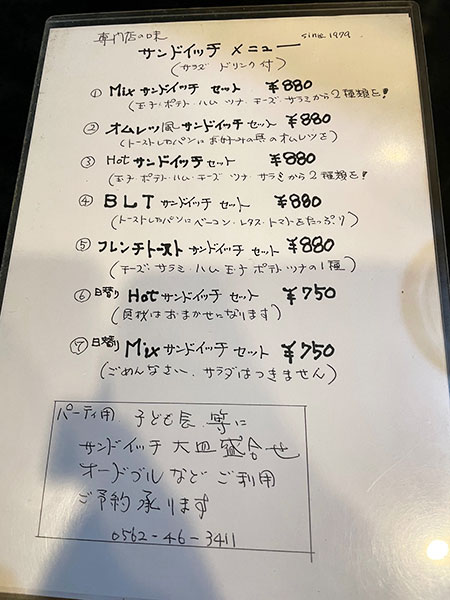 専門店の味 since 1979
サンドイッチ メニュー
(サラダ ドリンク付)
① Mix サンドイッチ セット ¥880
(玉子・ポテト・ハム ツナ・チーズ・サラミから2種類を!)
② オムレツ風サンドイッチ セット ¥880
(トーストしたパンに お好みの具のオムレツを)
③ Hot サンドイッチ セット ¥880
(玉子 ポテト・ハム・チーズ ツナ・サラミから2種類を!)
④ BLT サンドイッチ セット ¥880
(トーストしたパンにベーコン・レタス・トマトをたっぷり)
⑤ フレンチトースト サンドイッチ セット ¥880
(チーズ・サラミ・ハム 玉子 ポテト・ツナの1種)
⑥ 日替り Hot サンドイッチ セット ¥750
(具材はおまかせになります)
⑦ 日替り Mix サンドイッチ セット ¥750
(ごめんなさい、サラダはつきません)
パーティ用 子ども会 等に
サンドイッチ 大皿盛合せ
オードブル など ご利用
ご予約 承ります
0562-46-3411